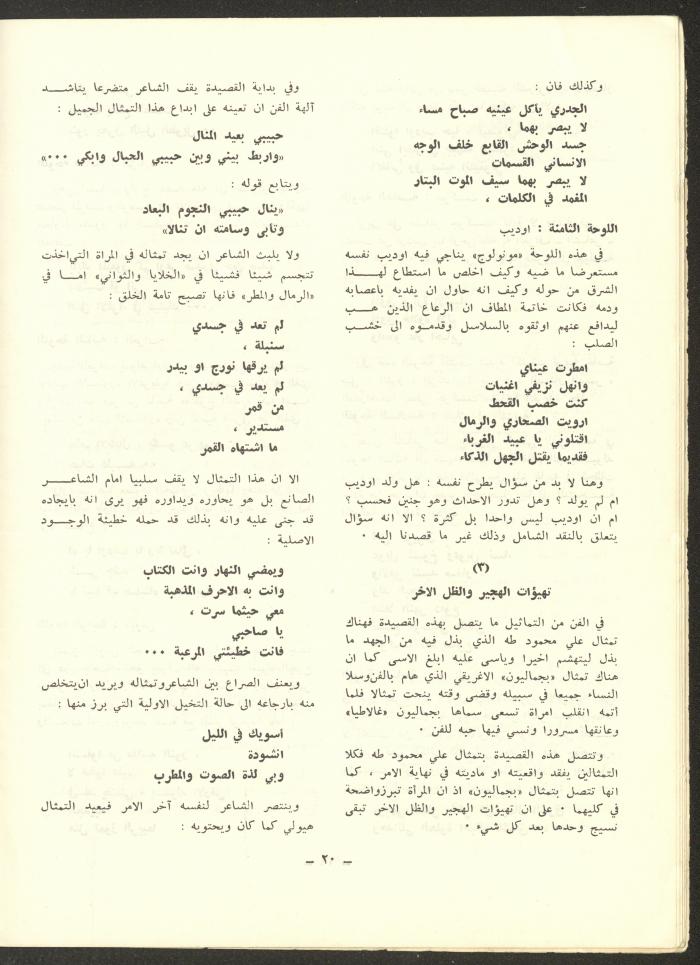 وكذلك فان :
الجدري يأكل عينيه صباح مساء
لا يبصر بهما ،
جسد الوحش القابع خلف الوجه
الانساني القسمات
لا يبصر بهما سيف الموت البتار
المغمد في الكلمات ،
اللوحة الثامنة : اوديب
في هذه اللوحة «مونولوج» يناجي فيه اوديب نفسه
مستعرضا ما ضيه وكيف اخلص ما استطاع لهذا
الشرق من حوله وكيف انه حاول ان يفديه بأعصابه
ودمه فكانت خاتمة المطاف ان الرعاع الذين هب
ليدافع عنهم اوثقوه بالسلاسل وقدموه الى خشب
الصلب :
امطرت عيناي
وانهل نزيفي اغنيات
كنت خصب القحط
ارويت الصحاري والرمال
اقتلوني يا عبيد الغرباء
فقديما يقتل الجهل الذكاء
وهنا لا بد من سؤال يطرح نفسه : هل ولد اوديب
ام لم يولد ؟ وهل تدور الاحداث وهو جنين فحسب ؟
ام ان اوديب ليس واحدا بل كثرة ؟ الا انه سؤال
يتعلق بالنقد الشامل وذلك غير ما قصدنا اليه ٠
(٣)
تهيؤات الهجير والظل الاخر
في الفن من التماثيل ما يتصل بهذه القصيدة فهناك
تمثال علي محمود طه الذي بذل فيه من الجهد ما
بذل ليتهشم اخيرا وياسى عليه ابلغ الاسى كما ان
هناك تمثال «بجماليون» الاغريقي الذي هام بالفن وسلا
النساء جميعا في سبيله وقضى وقته ينحت تمثالا فلما
أتمه انقلب امراة تسعى سماها بجماليون «غالاطيا»
وعانقها مسرورا ونسي فيها حبه للفن ٠
وتتصل هذه القصيدة بتمثال علي محمود طه فكلا
التمثالين يفقد واقعيته او ماديته في نهاية الامر ، كما
انها تتصل بتمثال «بجماليون» اذ ان المرأة تبرز واضحة
في كليهما ٠ على ان تهيؤات الهجير والظل الاخر تبقى
نسيج وحدها بعد كل شيء ٠
وفي بداية القصيدة يقف الشاعر متضرعا يناشد
آلهة الفن ان تعينه على ابداع هذا التمثال الجميل :
حبيبي بعيد المنال
«واربط بيني وبين حبيبي الحبال وابكي ٠٠٠»
ويتابع قوله :
«ينال حبيبي النجوم البعاد
وتأبى وسامته ان تنالا»
ولا يلبث الشاعر ان يجد تمثاله في المراة التي اخذت
تتجسم شيئا فشيئا في «الخلايا والثواني» اما في
«الرمال والمطر» فانها تصبح تامة الخلق :
لم تعد في جسدي
سنبلة ،
لم يرقها نورج او بيدر
لم يعد في جسدي ،
من قمر
مستدير ،
ما اشتهاه القمر
الا ان هذا التمثال لا يقف سلبيا امام الشاعر
الصانع بل هو يحاوره ويداوره فهو يرى انه بايجاده
قد جنى عليه وانه بذلك قد حمله خطيئة الوجود
الاصلية :
ويمضي النهار وانت الكتاب
وانت به الاحرف المذهبة
معي حيثما سرت ،
يا صاحبي
فانت خطيئتي المرعبة ٠٠٠
ويعنف الصراع بين الشاعر وتمثاله ويريد ان يتخلص
منه بارجاعه الى حالة التخيل الاولية التي برز منها :
أسويك في الليل
انشودة
وبي لذة الصوت والمطرب
وينتصر الشاعر لنفسه آخر الامر فيعيد التمثال
هيولي كما كان ويحتويه :
– ٢٠ –